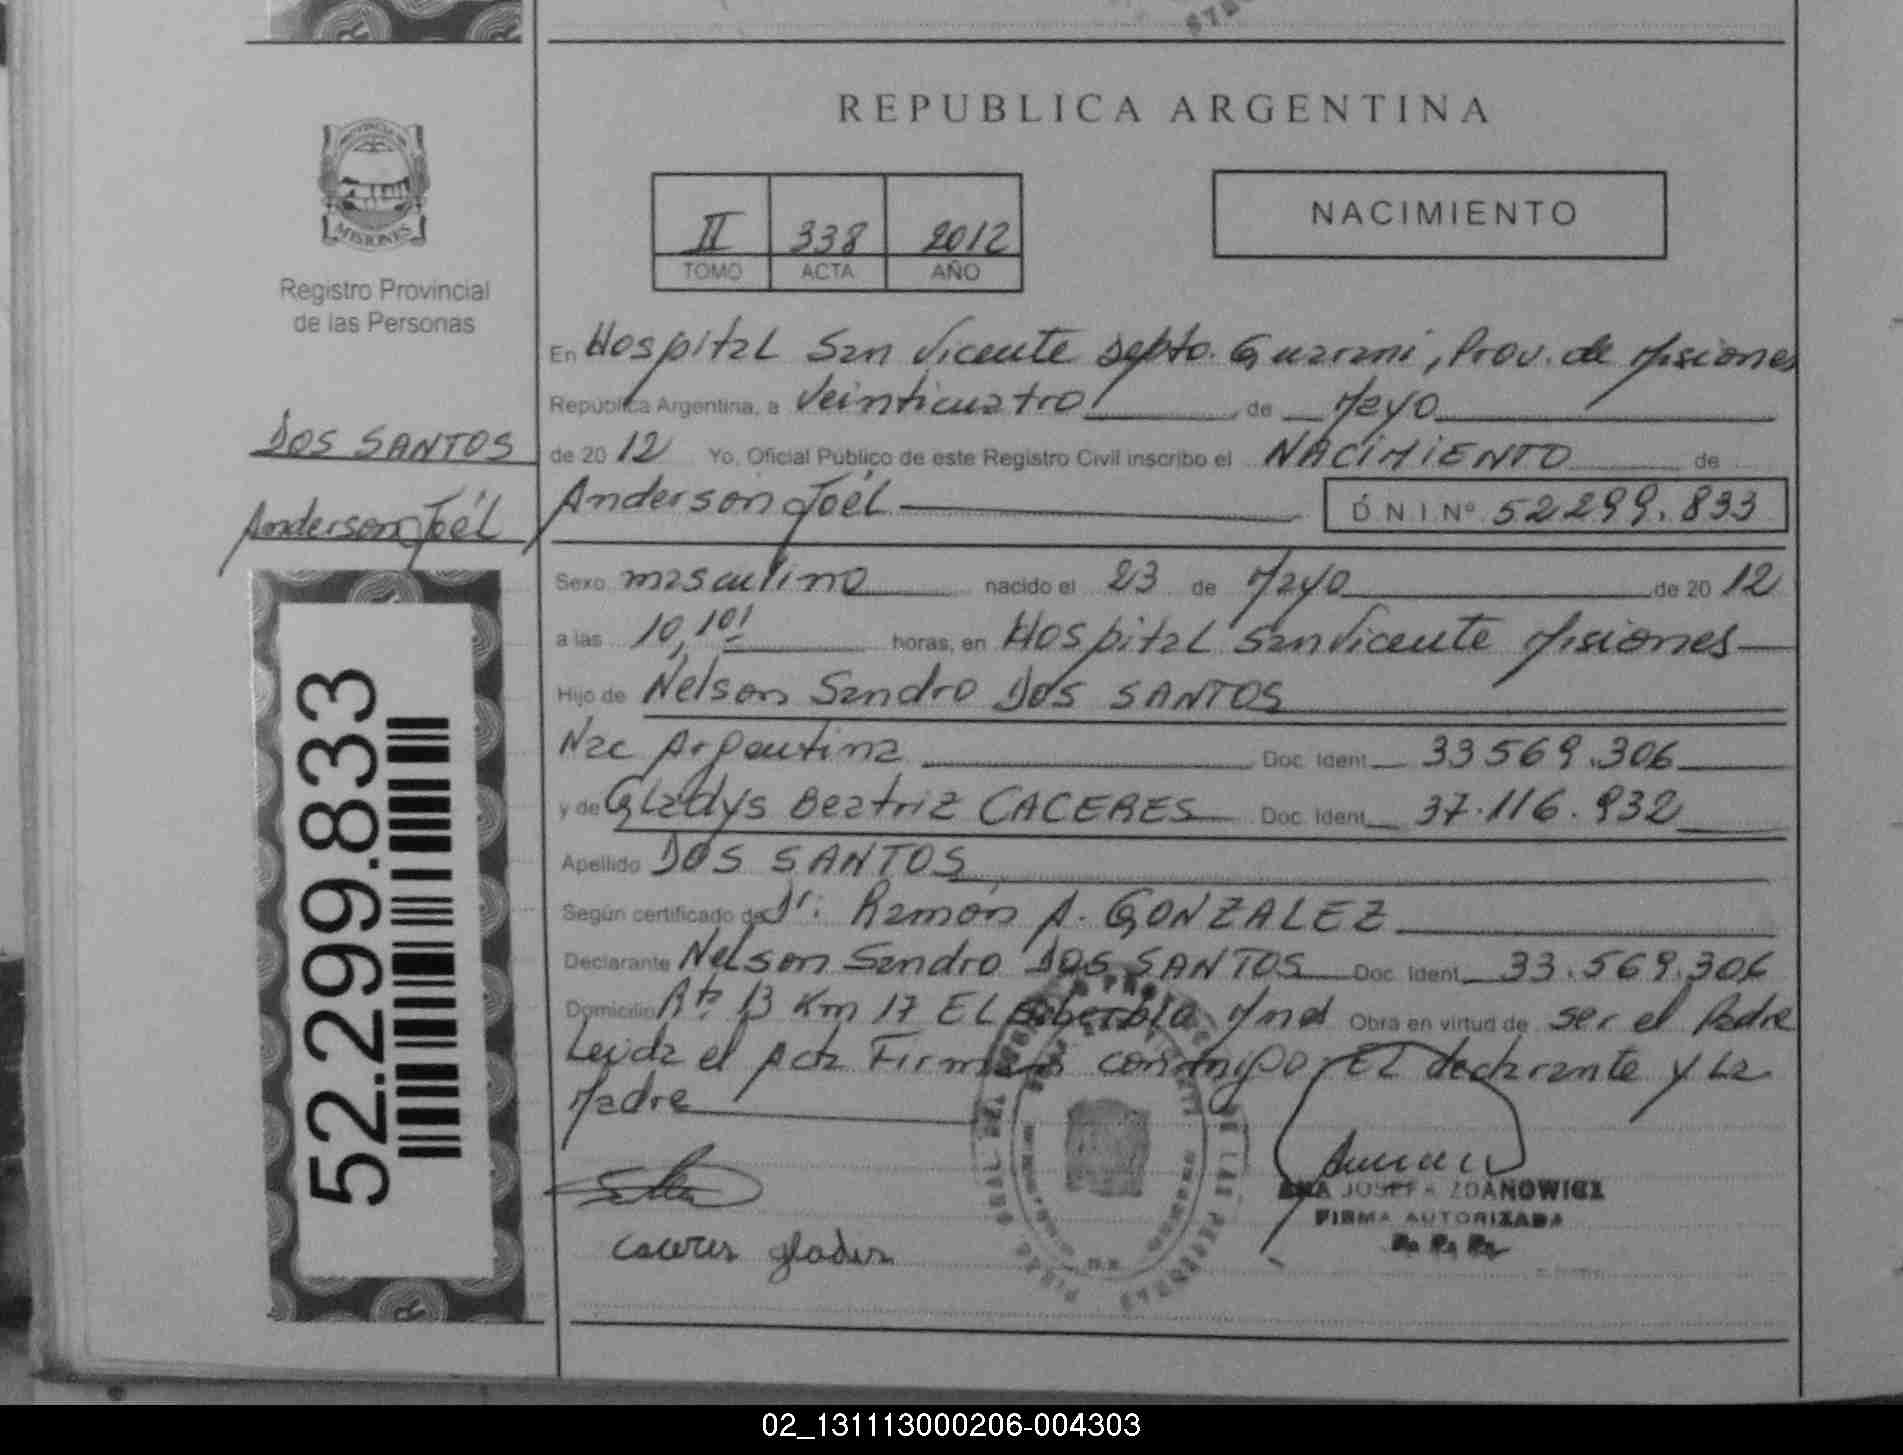 REPUBLICA ARGENTINA
PROVINCIA DE
MISIONES
Registro Provincial
de las Personas
II 338 2012
TOMO ACTA AÑO
NACIMIENTO
En Hospital San Vicente Depto. Guaraní, Prov. de Misiones
República Argentina, a Veinticuatro de Mayo
de 20 12 Yo, Oficial Público de este Registro Civil inscribo el NACIMIENTO de
DOS SANTOS
Anderson Joél
Anderson Joél D N I Nº 52299.833
Sexo masculino nacido el 23 de Mayo de 20 12
a las 10,10' horas, en Hospital San Vicente Misiones
Hijo de Nelson Sandro DOS SANTOS
Nac Argentina Doc. Ident. 33569.306
y de Gladys Beatriz CACERES Doc. Ident. 37.116.932
Apellido DOS SANTOS
Según certificado de Dr. Ramón A. GONZALEZ
Declarante Nelson Sandro DOS SANTOS Doc. Ident. 33.569.306
Domicilio Rta 13 Km 17 EL Soberbio Mnes Obra en virtud de ser el Padre
Leída el Acta Firman conmigo EL declarante y La
Madre
52.299.833
caceres glades
ANA JOSEFA ZDANOWICZ
FIRMA AUTORIZADA
02_131113000206-004303